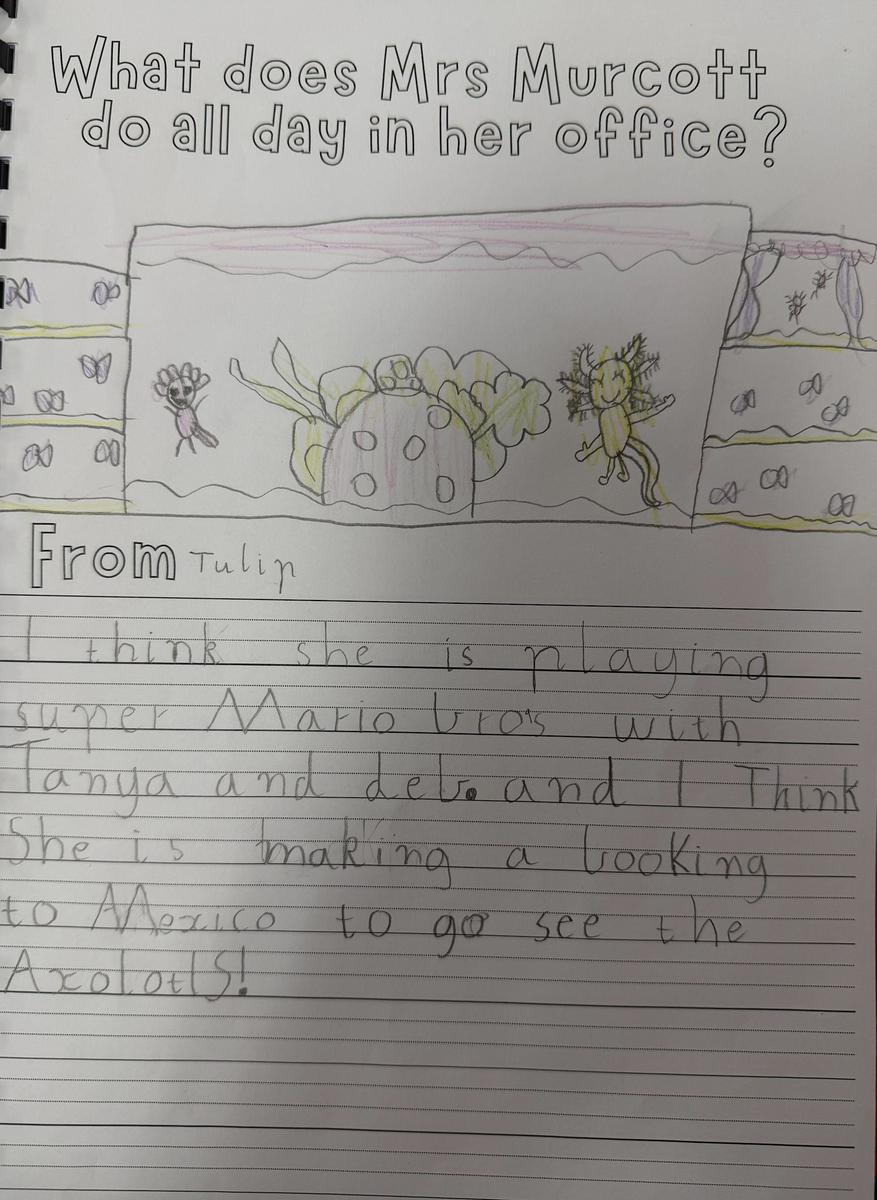 What does Mrs Murcott
do all day in her office?
From Tulip
I think she is playing
super Mario bros with
Tanya and deb. and I Think
She is making a booking
to Mexico to go see the
AxolotlS!